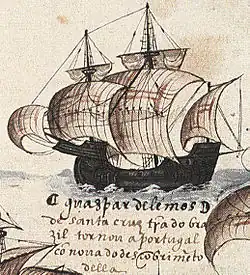 C guaspar delemos D
de santa cruz tr̃a do bra
zil tornou a portugal
cõ nova do descobrimẽto
della